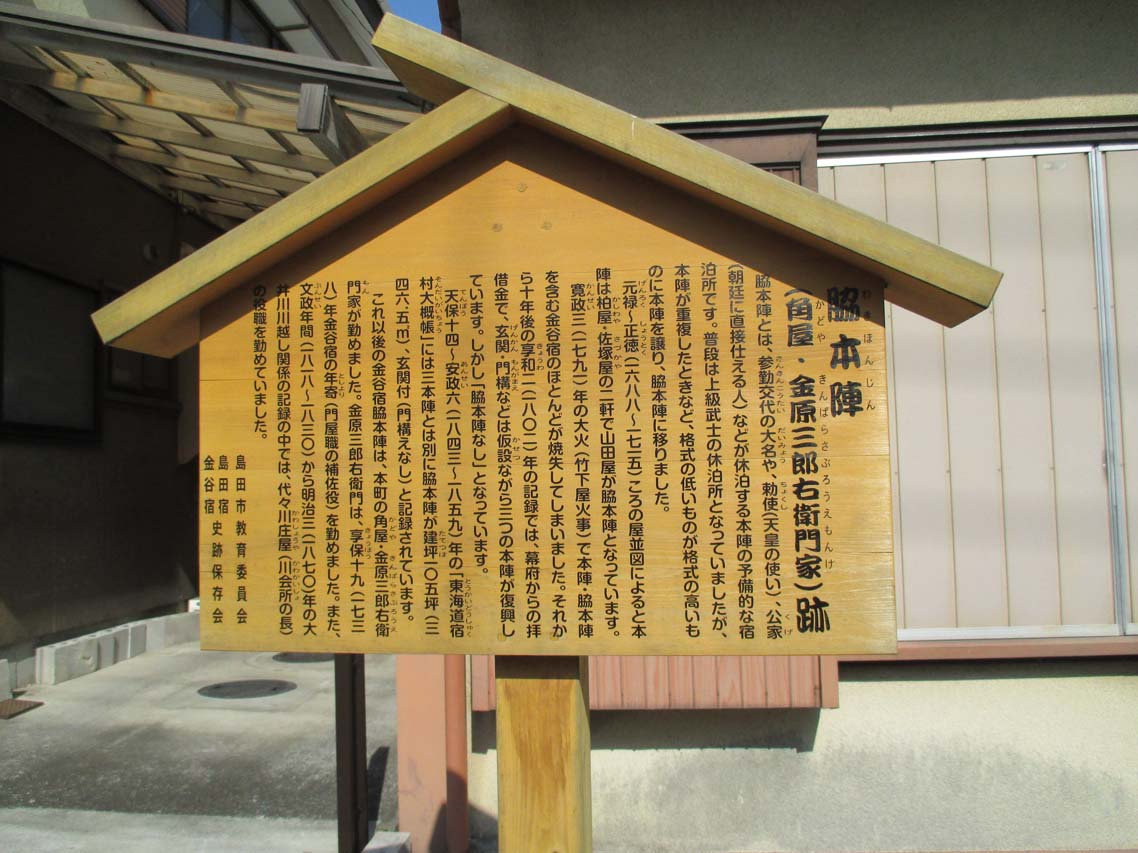 脇本陣
(角屋・金原三郎右衛門家)跡
脇本陣とは、参勤交代の大名や、勅使(天皇の使い)、公家
(朝廷に直接仕える人)などが休泊する本陣の予備的な宿
泊所です。普段は上級武士の休泊所となっていましたが、
本陣が重複したときなど、格式の低いものが格式の高いも
のに本陣を譲り、脇本陣に移りました。
元禄~正徳(一六八八~一七一五)ころの屋並図によると本
陣は柏屋・佐塚屋の二軒で山田屋が脇本陣となっています。
寛政三(一七九一)年の大火(竹下屋火事)で本陣・脇本陣
を含む金谷宿のほとんどが焼失してしまいました。それか
ら十年後の享和二(一八〇二)年の記録では、幕府からの拝
借金で、玄関・門構などは仮設ながら三つの本陣が復興し
ています。しかし「脇本陣なし」となっています。
天保十四~安政六(一八四三~一八五九)年の「東海道宿
村大概帳」には三本陣とは別に脇本陣が建坪一〇五坪(三
四六・五㎡)、玄関付(門構えなし)と記録されています。
これ以後の金谷宿脇本陣は、本町の角屋・金原三郎右衛
門家が勤めました。金原三郎右衛門は、享保十九(一七三
八)年金谷宿の年寄(門屋職の補佐役)を勤めました。また、
文政年間(一八一八~一八三〇)から明治三(一八七〇)年の大
井川川越し関係の記録の中では、代々川庄屋(川会所の長)
の役職を勤めていました。
島田市教育委員会
島田宿
金谷宿 史跡保存会